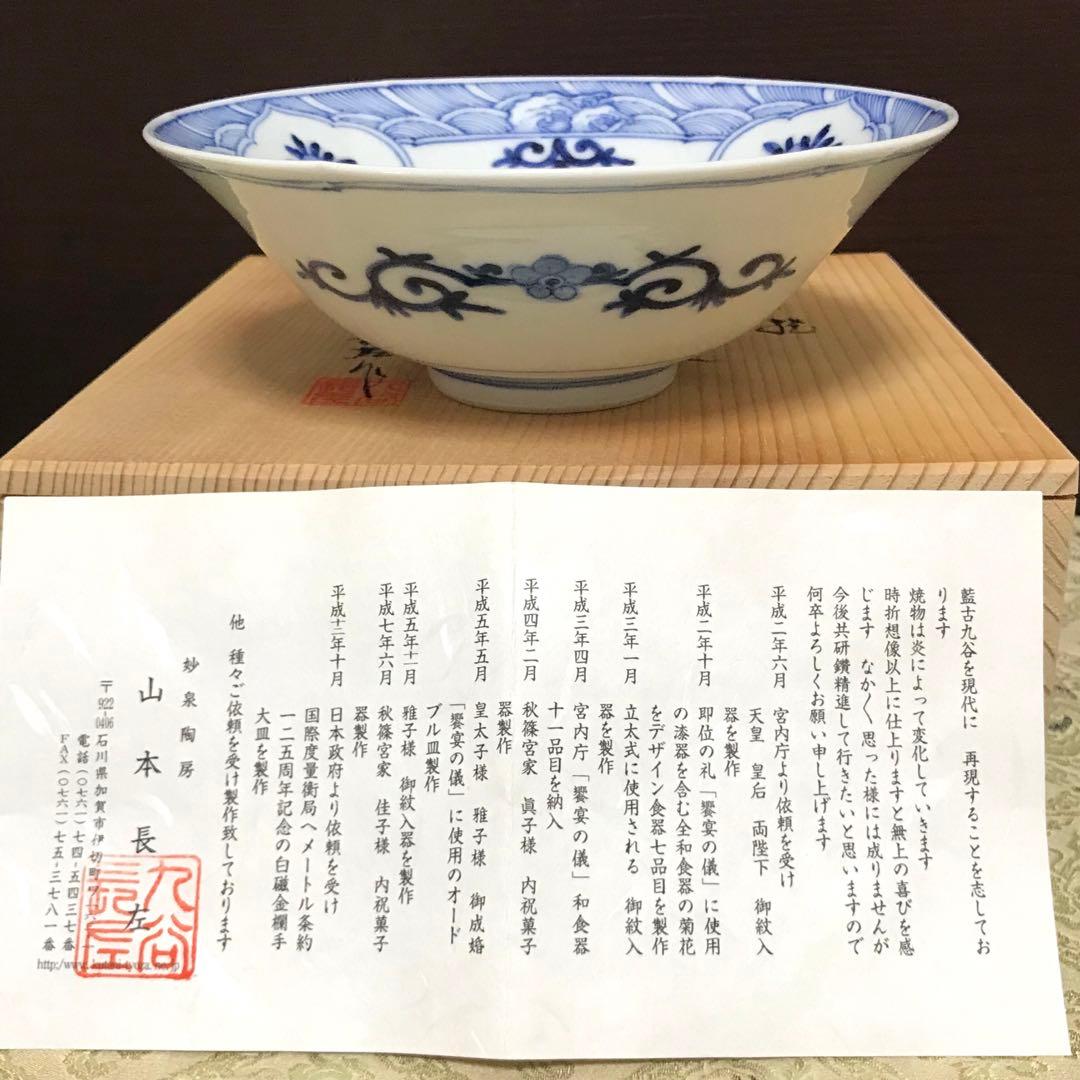 藍古九谷を現代に 再現することを志してお
ります
焼物は炎によって変化していきます
時折想像以上に仕上りますと無上の喜びを感
じます なか〱思った様には成りませんが
今後共研鑽精進して行きたいと思いますので
何卒よろしくお願い申し上げます
平成二年六月 宮内庁より依頼を受け
天皇 皇后 両陛下 御紋入
器を製作
平成二年十月 即位の礼「饗宴の儀」に使用
の漆器を含む全和食器の菊花
をデザイン食器七品目を製作
平成三年一月 立太式に使用される 御紋入
器を製作
平成三年四月 宮内庁「饗宴の儀」和食器
十一品目を納入
平成四年二月 秋篠宮家 眞子様 内祝菓子
器製作
平成五年五月 皇太子様 雅子様 御成婚
「饗宴の儀」に使用のオード
ブル皿製作
平成五年十一月 雅子様 御紋入器を製作
平成七年六月 秋篠宮家 佳子様 内祝菓子
器製作
平成十二年十月 日本政府より依頼を受け
国際度量衡局へメートル条約
一二五周年記念の白磁金襴手
大皿を製作
他 種々ご依頼を受け製作致しております
妙泉陶房
山本長左
〒922-0406 石川県加賀市伊切町
電話(〇七六一)七四-五四三七番
FAX(〇七六一)七五-三七八一番
九谷
長左
作